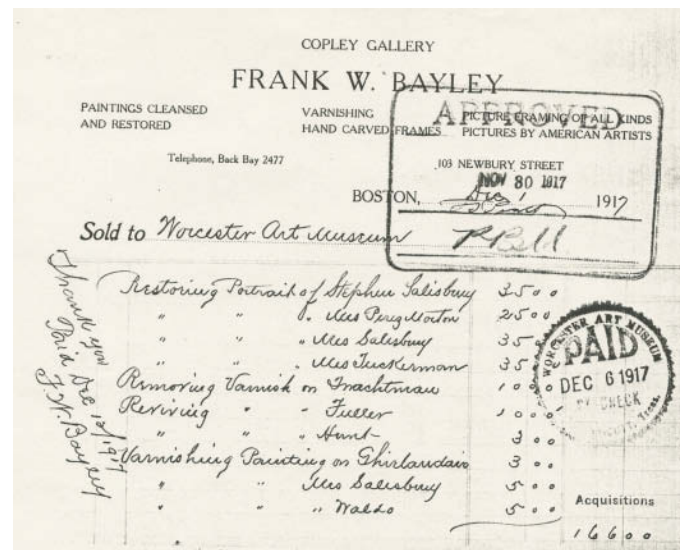 COPLEY GALLERY
FRANK W. BAYLEY
PAINTINGS CLEANSED
AND RESTORED
VARNISHING
HAND CARVED FRAMES
PICTURE FRAMING OF ALL KINDS
PICTURES BY AMERICAN ARTISTS
APPROVED
Telephone, Back Bay 2477
103 NEWBURY STREET
NOV 30 1917
BOSTON, Dec 1 1917
Sold to Worcester Art Museum
R Bell
Restoring Portrait of Stephen Salisbury 35 00
" " " Mrs Perez Morton 25 00
" " " Mrs Salisbury 35
" " " Mrs Tuckerman 35
Removing Varnish on 10 00
Reviving " " Fuller 10 00
" " " Hunt 3 00
Varnishing Painting on Ghirlandaio 3 00
" " Mrs Salisbury 5 00
" " Waldo 5 00
166 00
Thank you
Paid Dec 12/1917
F. W. Bayley
WORCESTER ART MUSEUM
PAID
DEC 6 1917
BY CHECK
Acquisitions